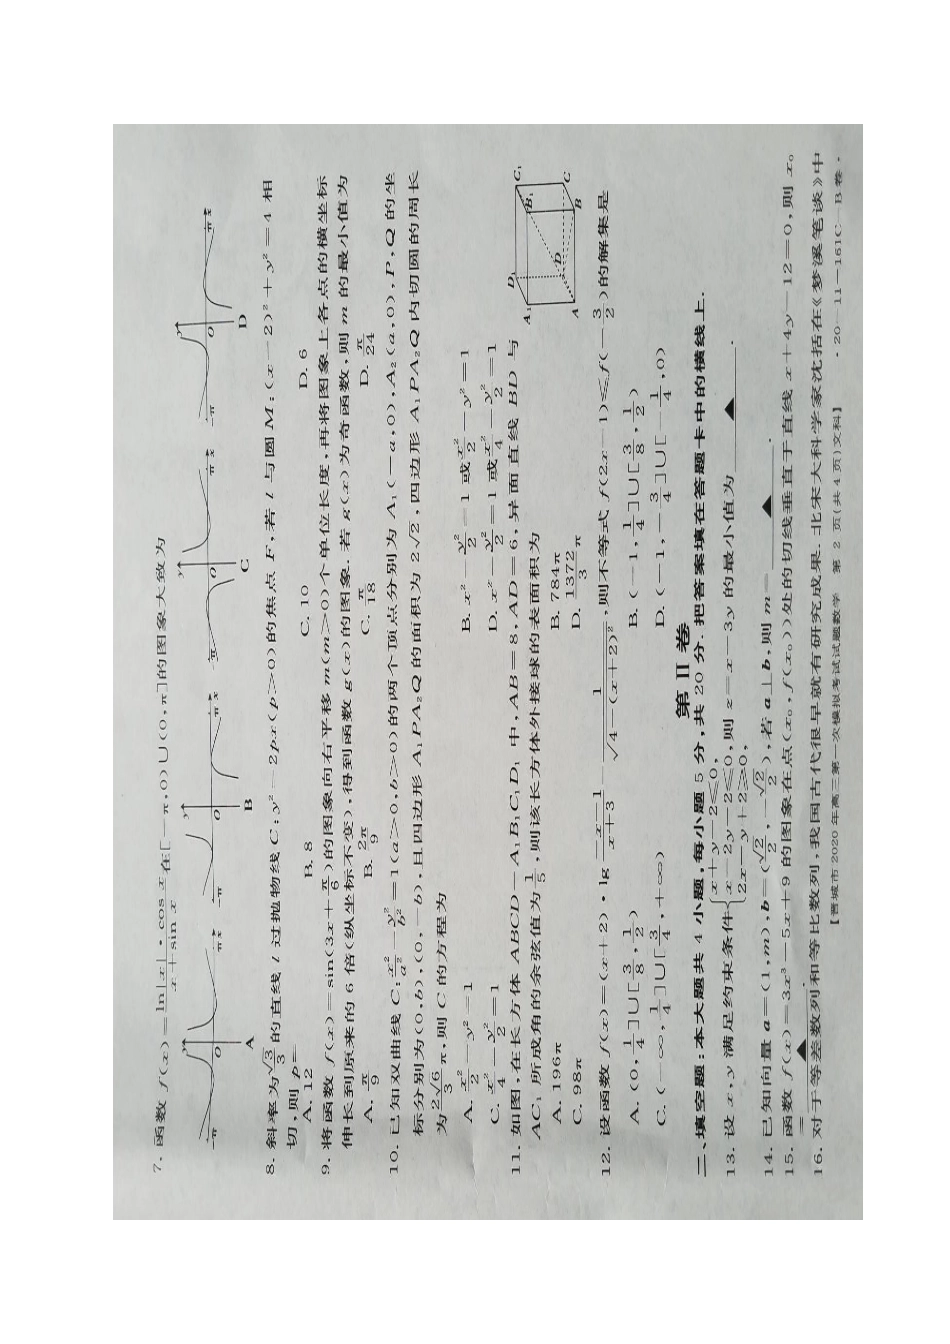 7. 函数 f(x)=\frac{\ln|x|·\cos x}{x+\sin x} 在[-π,0)∪(0,π]的图象大致为
y -π O π x A
y -π O π x B
y -π O π x C
y -π O π x D
8. 斜率为\frac{\sqrt{3}}{3}的直线 l 过抛物线 C:y²=2px(p>0)的焦点 F,若 l 与圆 M:(x-2)²+y²=4 相
切,则 p=
A. 12 B. 8 C. 10 D. 6
9. 将函数 f(x)=sin(3x+\frac{π}{6})的图象向右平移 m(m>0)个单位长度,再将图象上各点的横坐标
伸长到原来的 6 倍(纵坐标不变),得到函数 g(x)的图象. 若 g(x)为奇函数,则 m 的最小值为
A. \frac{π}{9} B. \frac{2π}{9} C. \frac{π}{18} D. \frac{π}{24}
10. 已知双曲线 C:\frac{x²}{a²}-\frac{y²}{b²}=1(a>0,b>0)的两个顶点分别为 A₁(-a,0),A₂(a,0),P,Q 的坐
标分别为(0,b),(0,-b),且四边形 A₁PA₂Q 的面积为 2\sqrt{2},四边形 A₁PA₂Q 内切圆的周长
为\frac{2\sqrt{6}}{3}π,则 C 的方程为
A. \frac{x²}{2}-y²=1 B. x²-\frac{y²}{2}=1 或\frac{x²}{2}-y²=1
C. \frac{x²}{4}-\frac{y²}{2}=1 D. x²-\frac{y²}{2}=1 或\frac{x²}{4}-\frac{y²}{2}=1
11. 如图,在长方体 ABCD-A₁B₁C₁D₁ 中,AB=8,AD=6,异面直线 BD 与
AC₁ 所成角的余弦值为\frac{1}{5},则该长方体外接球的表面积为
A. 196π B. 784π
C. 98π D. \frac{1372}{3}π
D₁ C₁ A₁ B₁ D C A B
12. 设函数 f(x)=(x+2)·lg\frac{-x-1}{x+3}-\frac{1}{\sqrt{4-(x+2)²}},则不等式 f(2x-1)≤f(-\frac{3}{2})的解集是
A. (0,\frac{1}{4}]∪[\frac{3}{8},\frac{1}{2}) B. (-1,\frac{1}{4}]∪[\frac{3}{8},\frac{1}{2})
C. (-∞,\frac{1}{4}]∪[\frac{3}{4},+∞) D. (-1,-\frac{3}{4}]∪[-\frac{1}{4},0)
第Ⅱ卷
二、填空题:本大题共 4 小题,每小题 5 分,共 20 分. 把答案填在答题卡中的横线上.
13. 设 x,y 满足约束条件{x+y-2≤0, x-2y-2≤0, 2x-y+2≥0, 则 z=x-3y 的最小值为 ▲ .
14. 已知向量 a=(1,m),b=(\frac{\sqrt{2}}{2},-\frac{\sqrt{2}}{2}),若 a⊥b,则 m= ▲ .
15. 函数 f(x)=3x³-5x+9 的图象在点(x₀,f(x₀))处的切线垂直于直线 x+4y-12=0,则 x₀
= ▲ .
16. 对于等差数列和等比数列,我国古代很早就有研究成果. 北宋大科学家沈括在《梦溪笔谈》中
【晋城市2020年高三第一次模拟考试试题数学 第 2 页(共4页)文科】 ·20-11-161C-B卷·